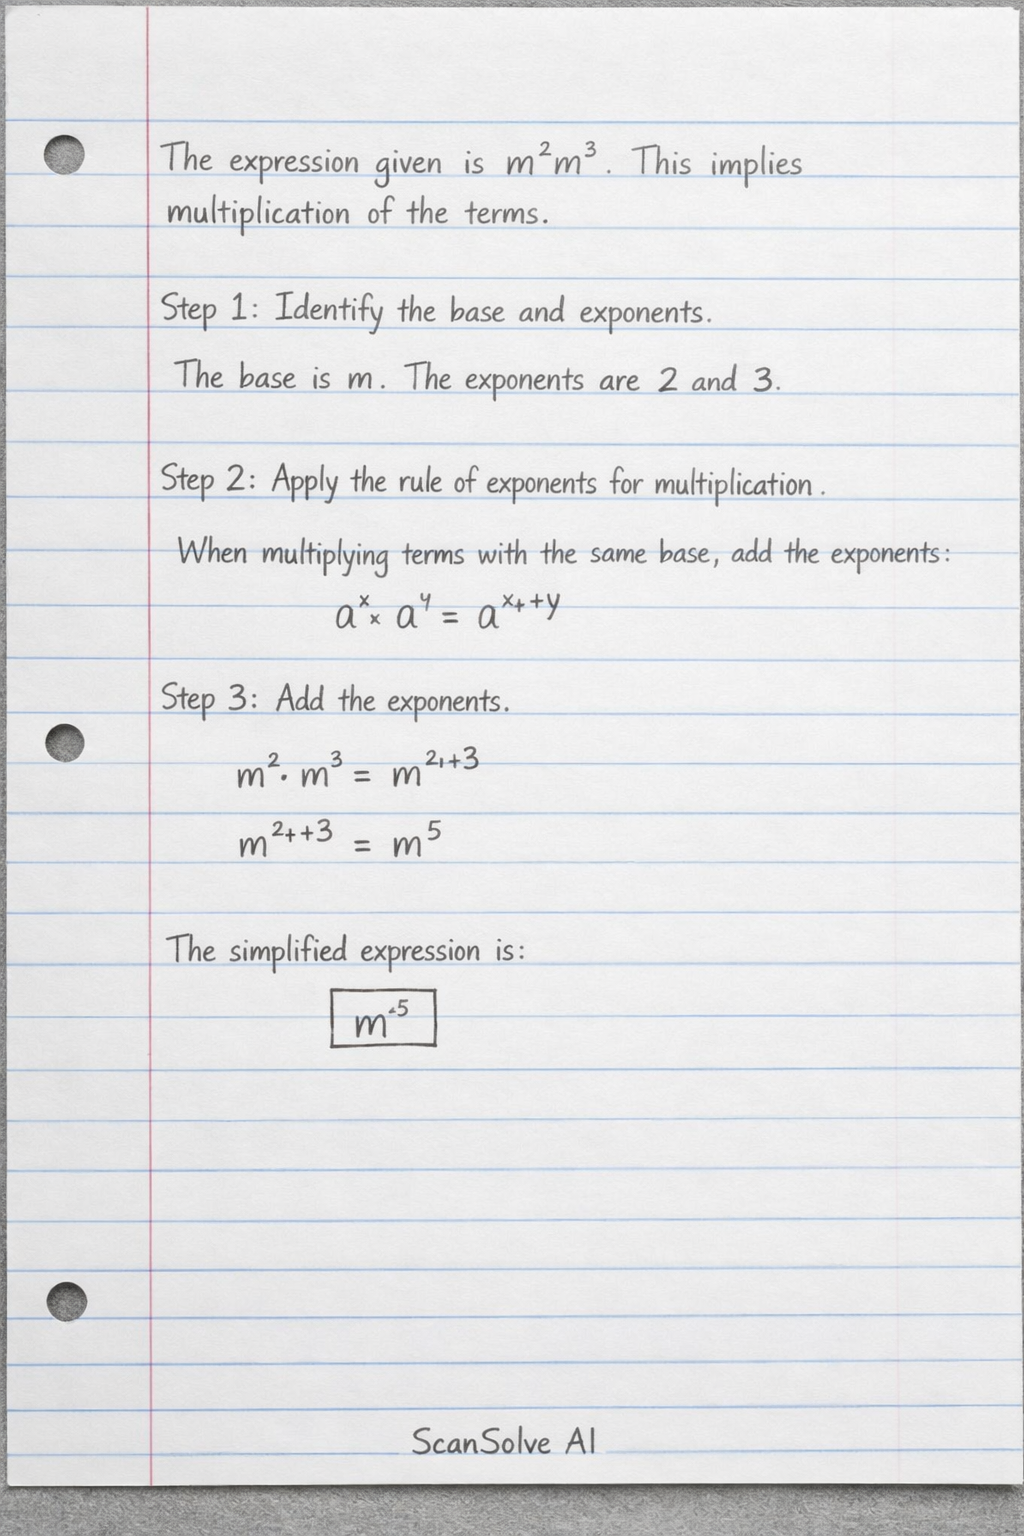 The expression given is m²m³. This implies
multiplication of the terms.
Step 1: Identify the base and exponents.
The base is m. The exponents are 2 and 3.
Step 2: Apply the rule of exponents for multiplication.
When multiplying terms with the same base, add the exponents:
a^x × a^y = a^x++y
Step 3: Add the exponents.
m² · m³ = m^2,+3
m^2++3 = m⁵
The simplified expression is:
m^-5
ScanSolve AI